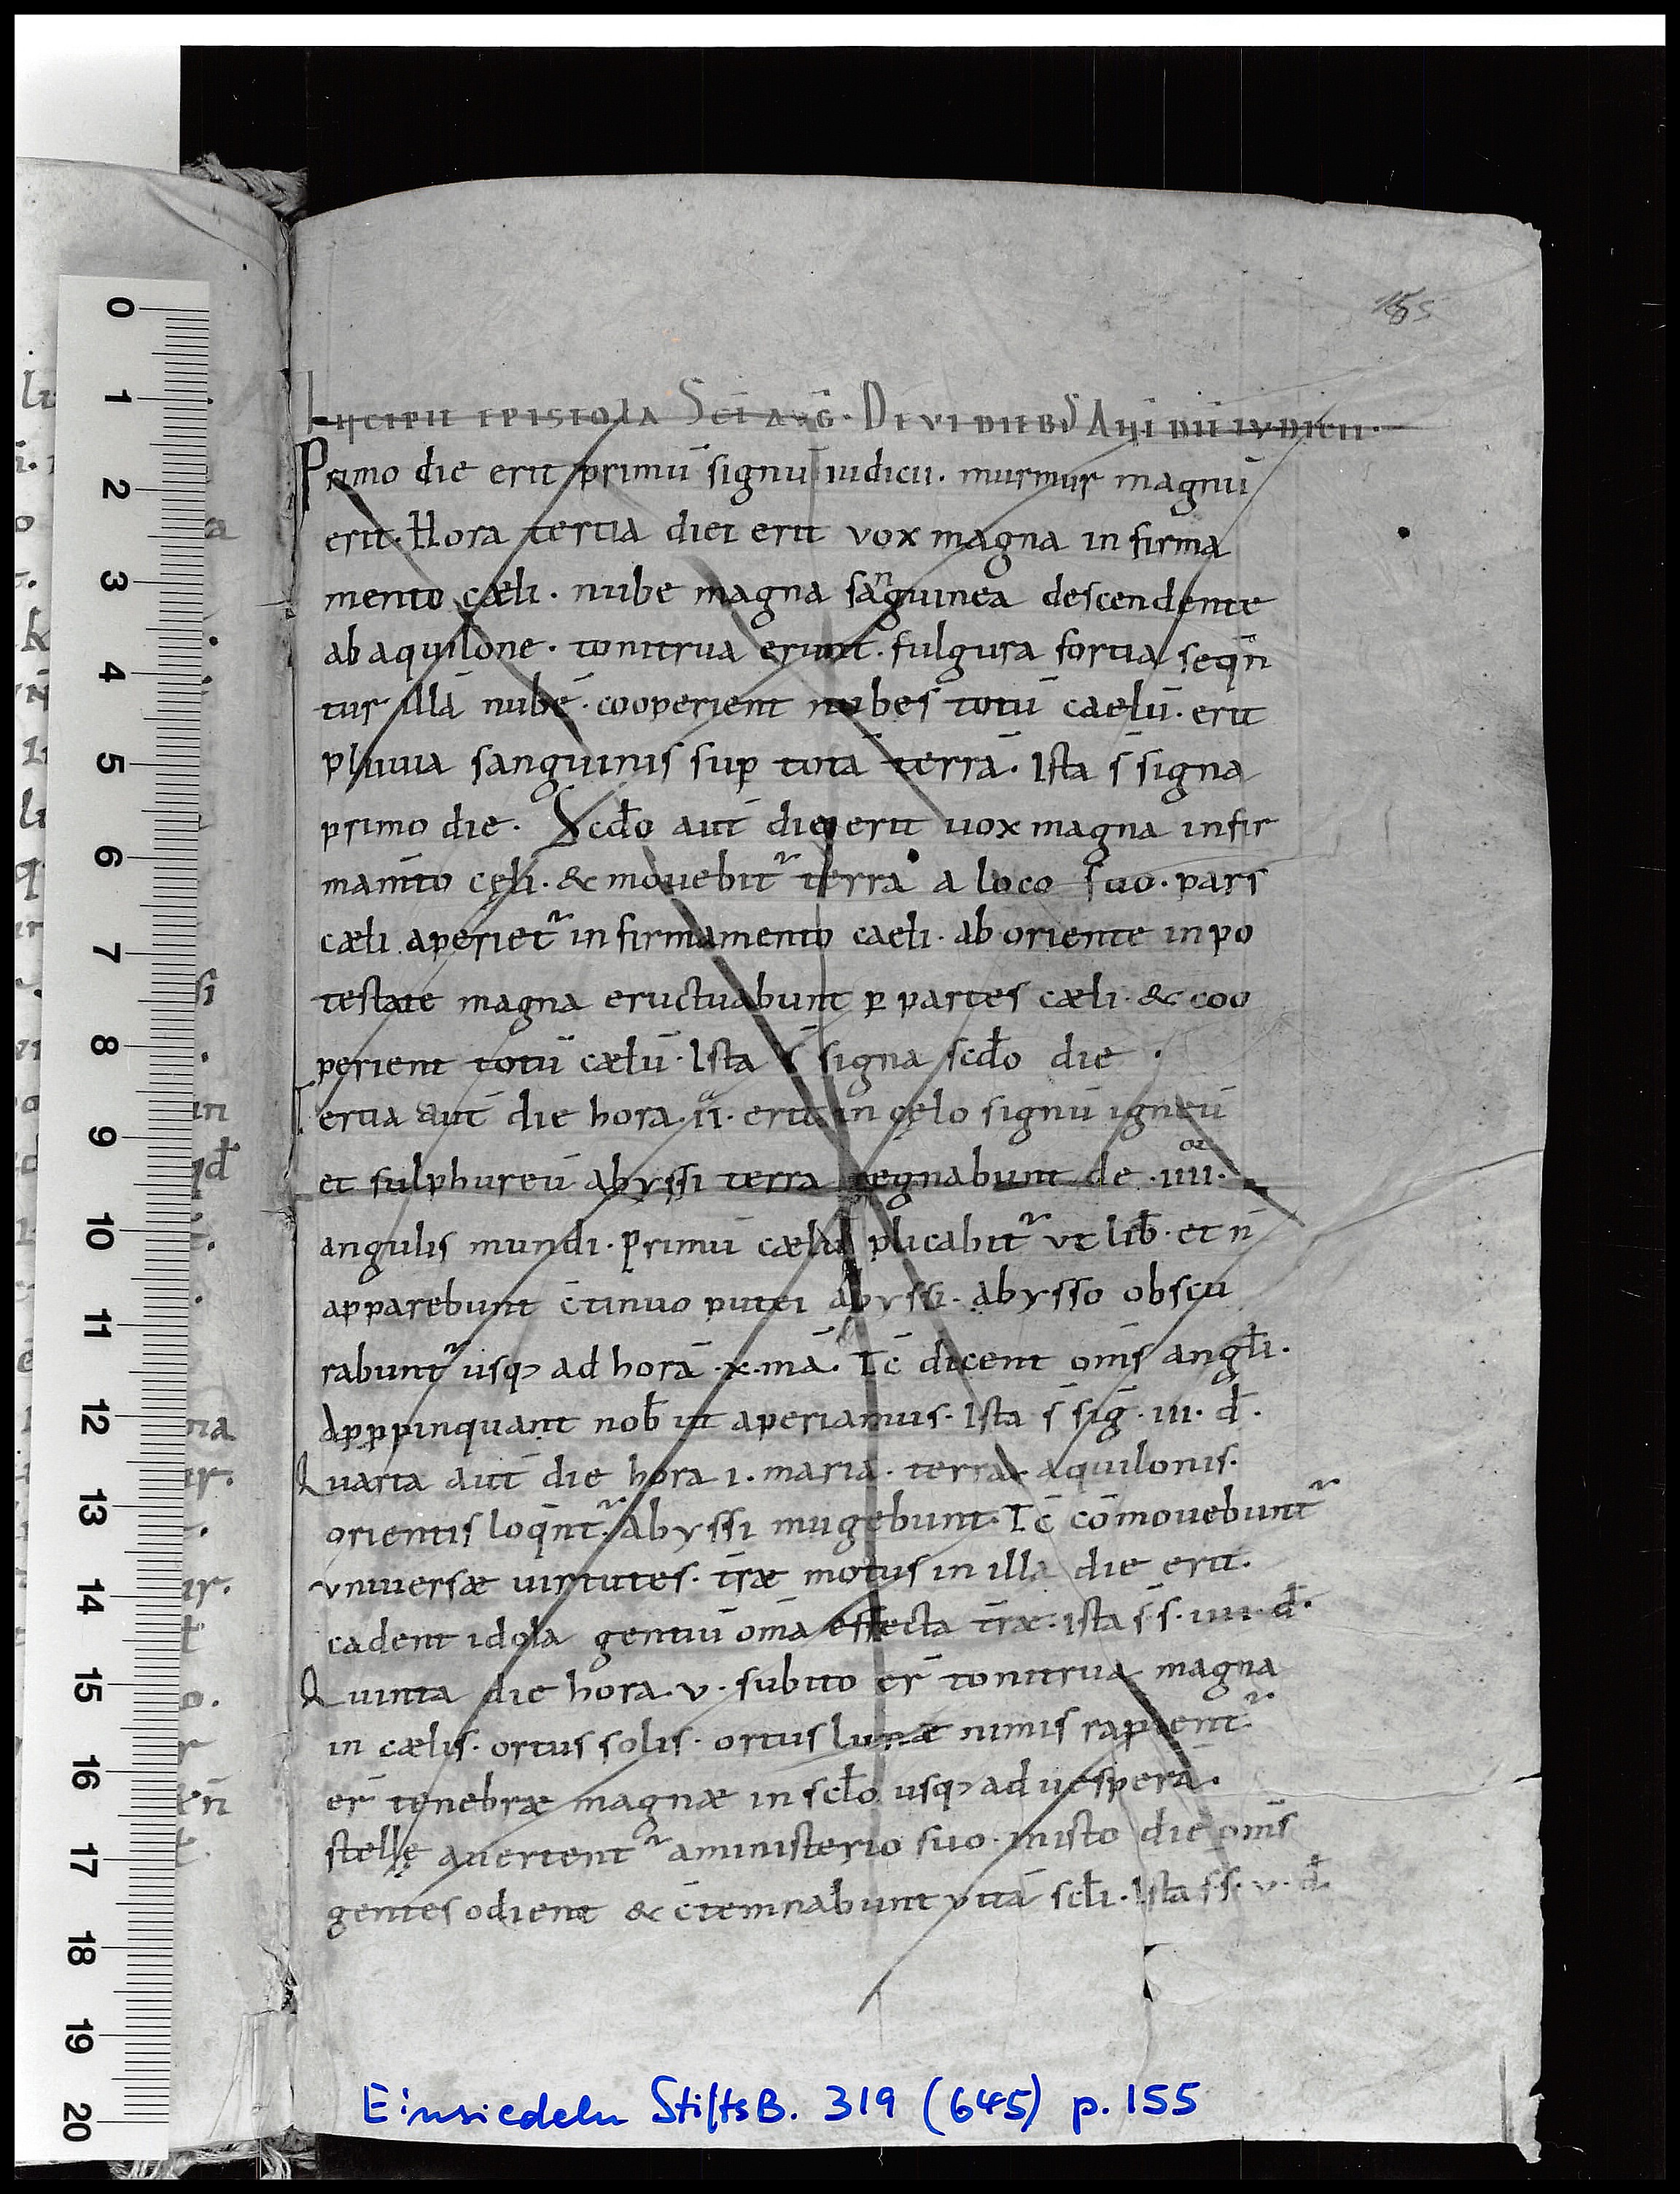 155
Incipit epistola Sci aug. De vi diebus Anī diē iudicii.
Primo die erit primū signū iudicii. murmur magnū
erit. Hora tertia diei erit vox magna in firma
mento cæli. nube magna sanguinea descendente
ab aquilone. tonitrua erunt. fulgura fortia seqn̄
tur illā nubē. cooperient nubes totū caelū. erit
pluuia sanguinis sup totā terrā. Ista s̄ signa
primo die. Scdo aut̄ die erit uox magna in fir
mam̄to cęli. & mouebit᷑ terra a loco suo. pars
cæli aperiet᷑ in firmamento caeli. ab oriente in po
testate magna eructuabunt ꝑ partes cæli. & coo
perient totū cælū. Ista s̄ signa scdo die.
Tertia aut̄ die hora. ii. erit in cęlo signū igneū
et sulphureū abyssi terra regnabunt de .iiii.or
angulis mundi. Primū cælū plicabit᷑ vt lib̄. et n̄
apparebunt c̄tinuo putei abyssi. abysso obscu
rabunt᷑ usq; ad horā .x.mā. Tc̄ dicent om̄s angłi.
Apꝓpinquant nob̄ ut aperiamus. Ista s̄ sig̅. iii. đ.
Quarta aut̄ die hora i. maria. terra aquilonis.
orientis loqn̄t᷑. Abyssi mugebunt. Tc̄ cōmouebunt᷑
vniuersæ uirtutes. tr̄æ motus in illa die erit.
cadent idola gentiū om̄a effecta tr̄æ. ista s̄ s. iiii. đ.
Quinta die hora. v. subito er̄ tonitrua magna
in cælis. ortus solis. ortus lunæ nimis rapient᷑.
er̄ tenebræ magnæ in scło usq; ad uesperā.
stellę auertent᷑ a ministerio suo. in isto die om̄s
gentes odient & c̄temnabunt vitā scłi. Ista s̄ s. v. đ.
Einsiedeln StiftsB. 319 (645) p. 155
0
1
2
3
4
5
6
7
8
9
10
11
12
13
14
15
16
17
18
19
20